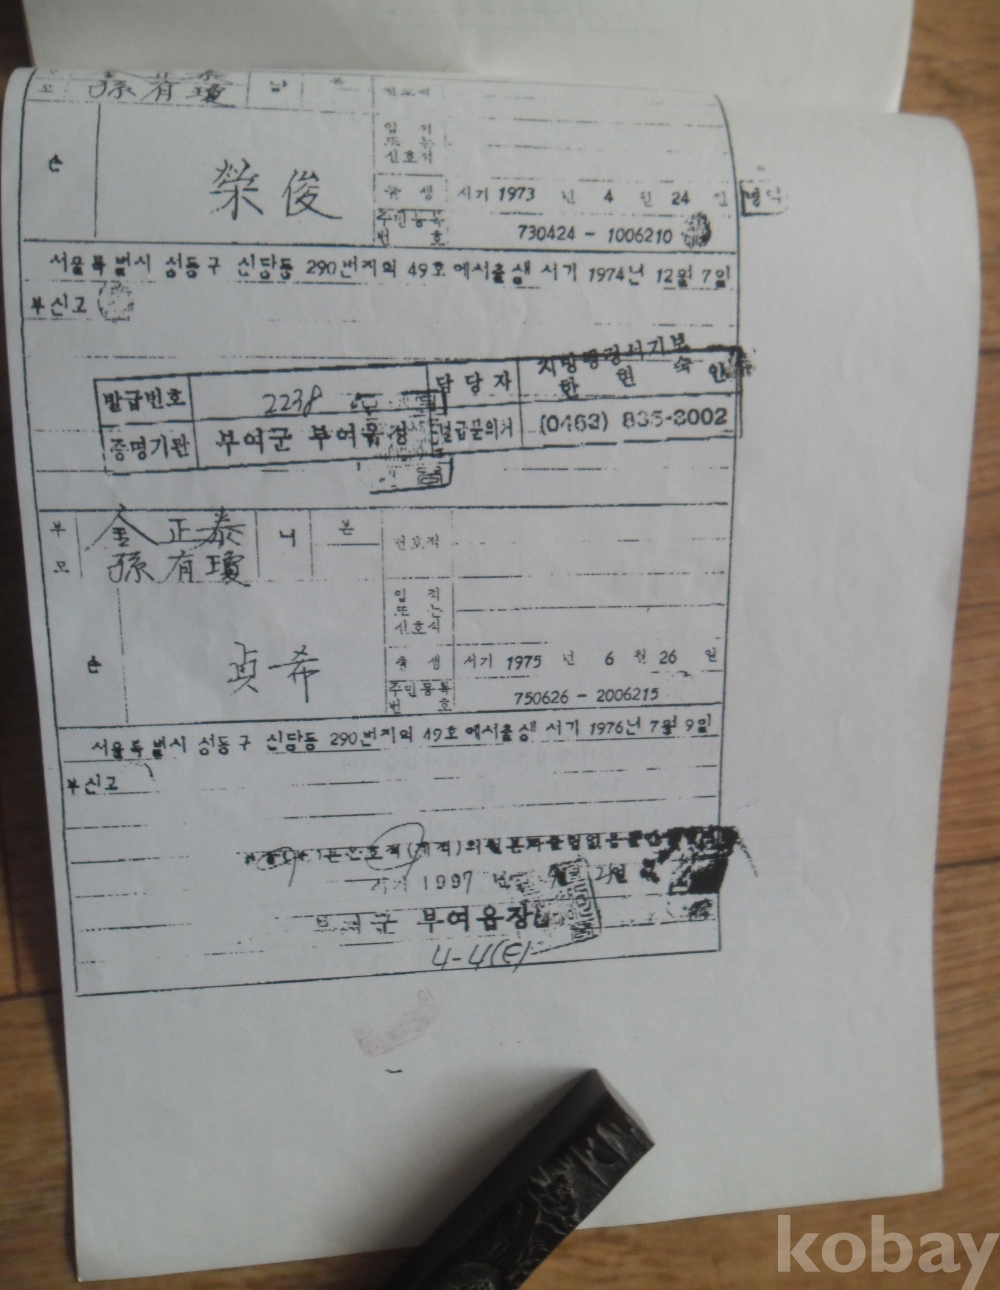 孫有瓊
손 榮俊
입적
또는
신호적
출생 서기 1973 년 4 월 24 일
주민등록
번호 730424 - 1006210
서울특별시 성동구 신담동 290번지의 49호에서출생 서기 1974년 12월 7일
부신고
발급번호 2238 담당자 지방행정서기보
증명기관 부여군 부여읍장 발급문의처 (0463) 835-3002
부 金正泰 녀 본 전호적
모 孫有瓊
입적
또는
신호적
손 貞希
출생 서기 1975 년 6 월 26 일
주민등록
번호 750626 - 2006215
서울특별시 성동구 신담동 290번지의 49호에서출생 서기 1976년 7월 9일
부신고
서기 1997 년
부여군 부여읍장
4-4(E)
kobay